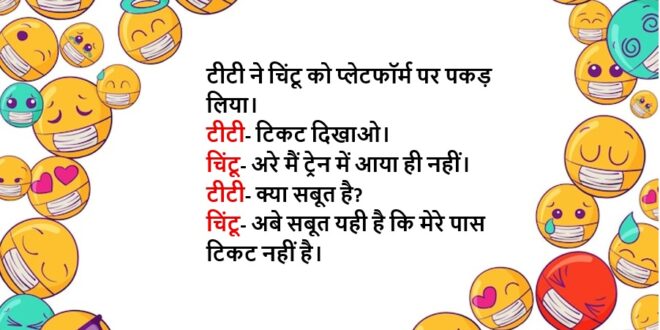 टीटी ने चिंटू को प्लेटफॉर्म पर पकड़
लिया।
टीटी- टिकट दिखाओ।
चिंटू- अरे मैं ट्रेन में आया ही नहीं।
टीटी- क्या सबूत है?
चिंटू- अबे सबूत यही है कि मेरे पास
टिकट नहीं है।